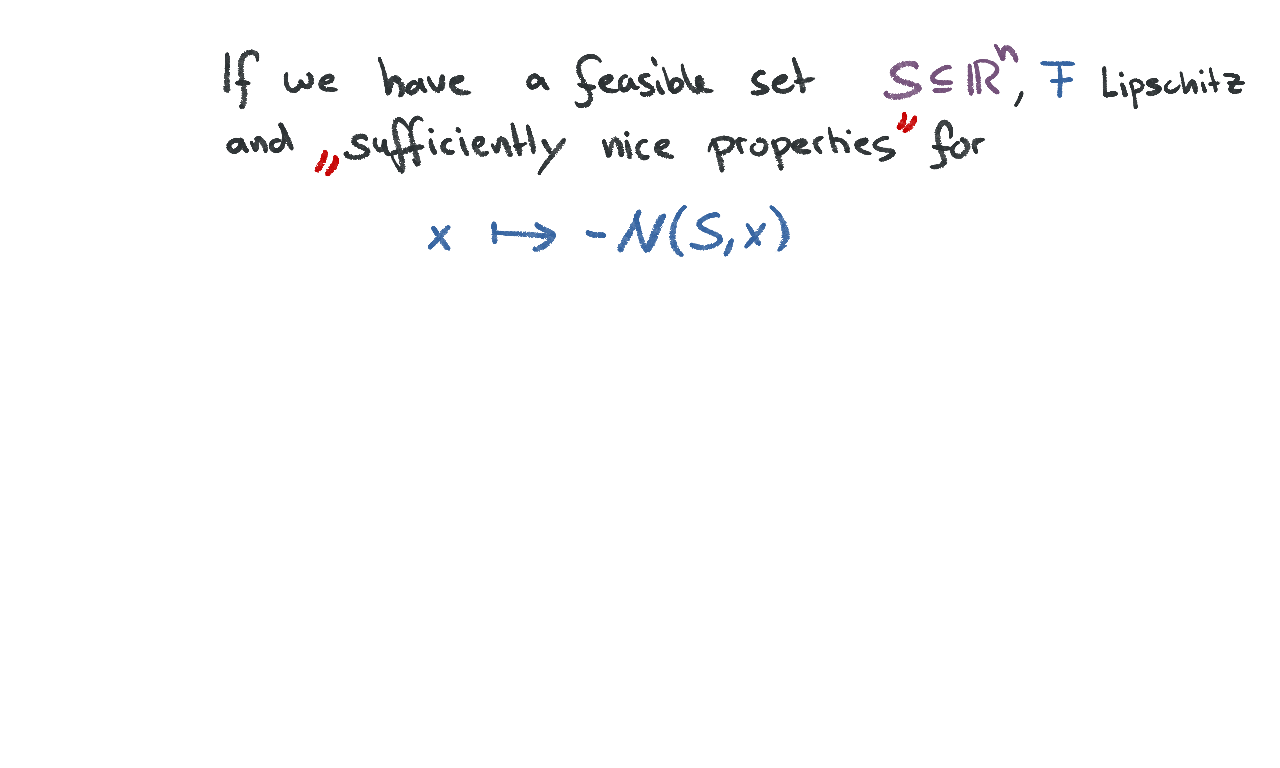 If we have a feasible set S ⊆ ℝⁿ, F Lipschitz
and „sufficiently nice properties" for
x ↦ -N(S,x)